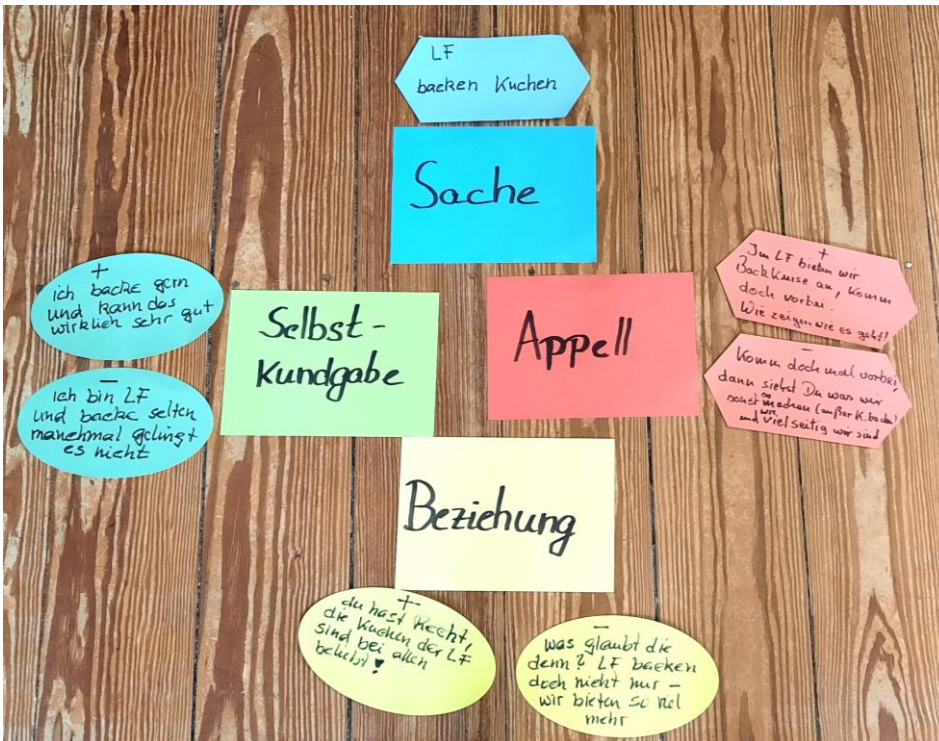 LF
backen Kuchen
Sache
+
ich backe gern
und kann das
wirklich sehr gut
–
ich bin LF
und backe selten
manchmal gelingt
es nicht
Selbst-
kundgabe
Appell
+
Im LF bieten wir
Backkurse an, komm
doch vorbei.
Wir zeigen wie es geht!
–
Komm doch mal vorbei,
dann siehst Du was wir
sonst so machen (außer K. backen)
und wie vielseitig wir sind
Beziehung
+
du hast Recht,
die Kuchen der LF
sind bei allen
beliebt!
–
was glaubt die
denn? LF backen
doch nicht nur –
wir bieten so viel
mehr